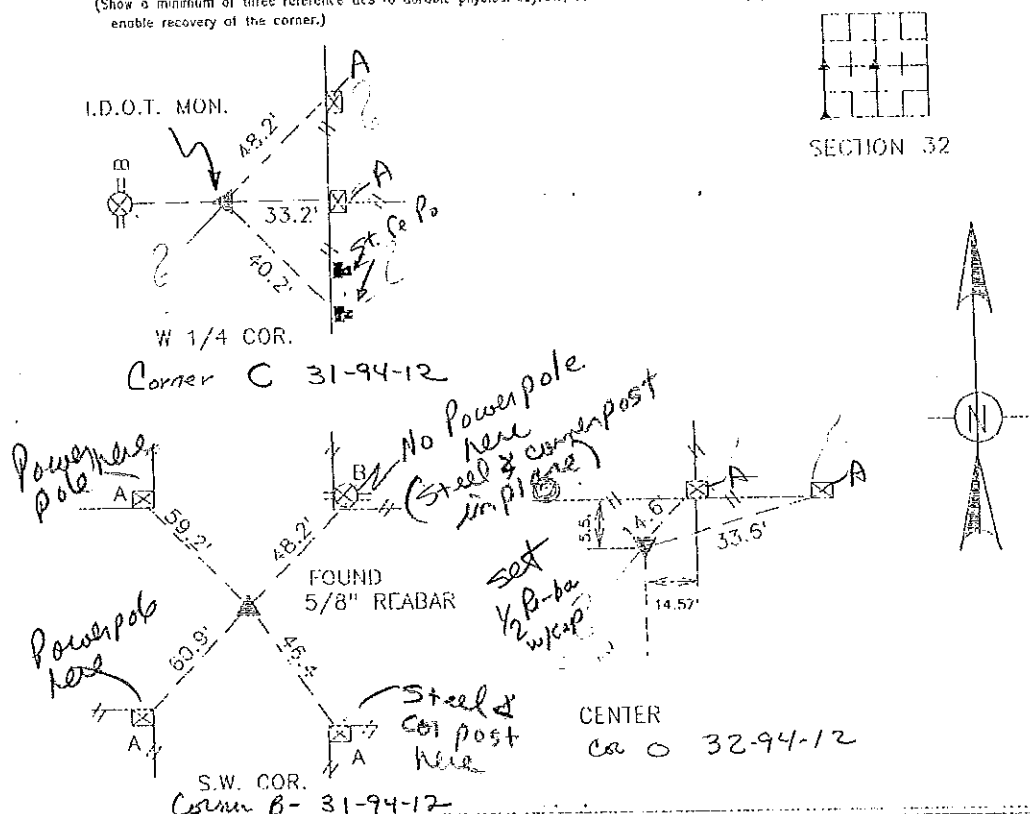 (Show a minimum of three reference ties to durable physical
enable recovery of the corner.)
I.D.O.T. MON.
A
48.2'
B
33.2'
A
40.2'
St. Ce Po
W 1/4 COR.
Corner C 31-94-12
SECTION 32
N
Power pole here
A
59.2'
B
48.2'
No Powerpole
here
(Steel & cornerpost
in place)
FOUND
5/8" REABAR
Powerpole
here
60.9'
46.4
A
A
Steel &
cor post
here
S.W. COR.
Corner B- 31-94-12
A
A
5.5
14.6
33.6'
14.57'
set
1/2 Re-bar
w/cap
CENTER
Cor O 32-94-12